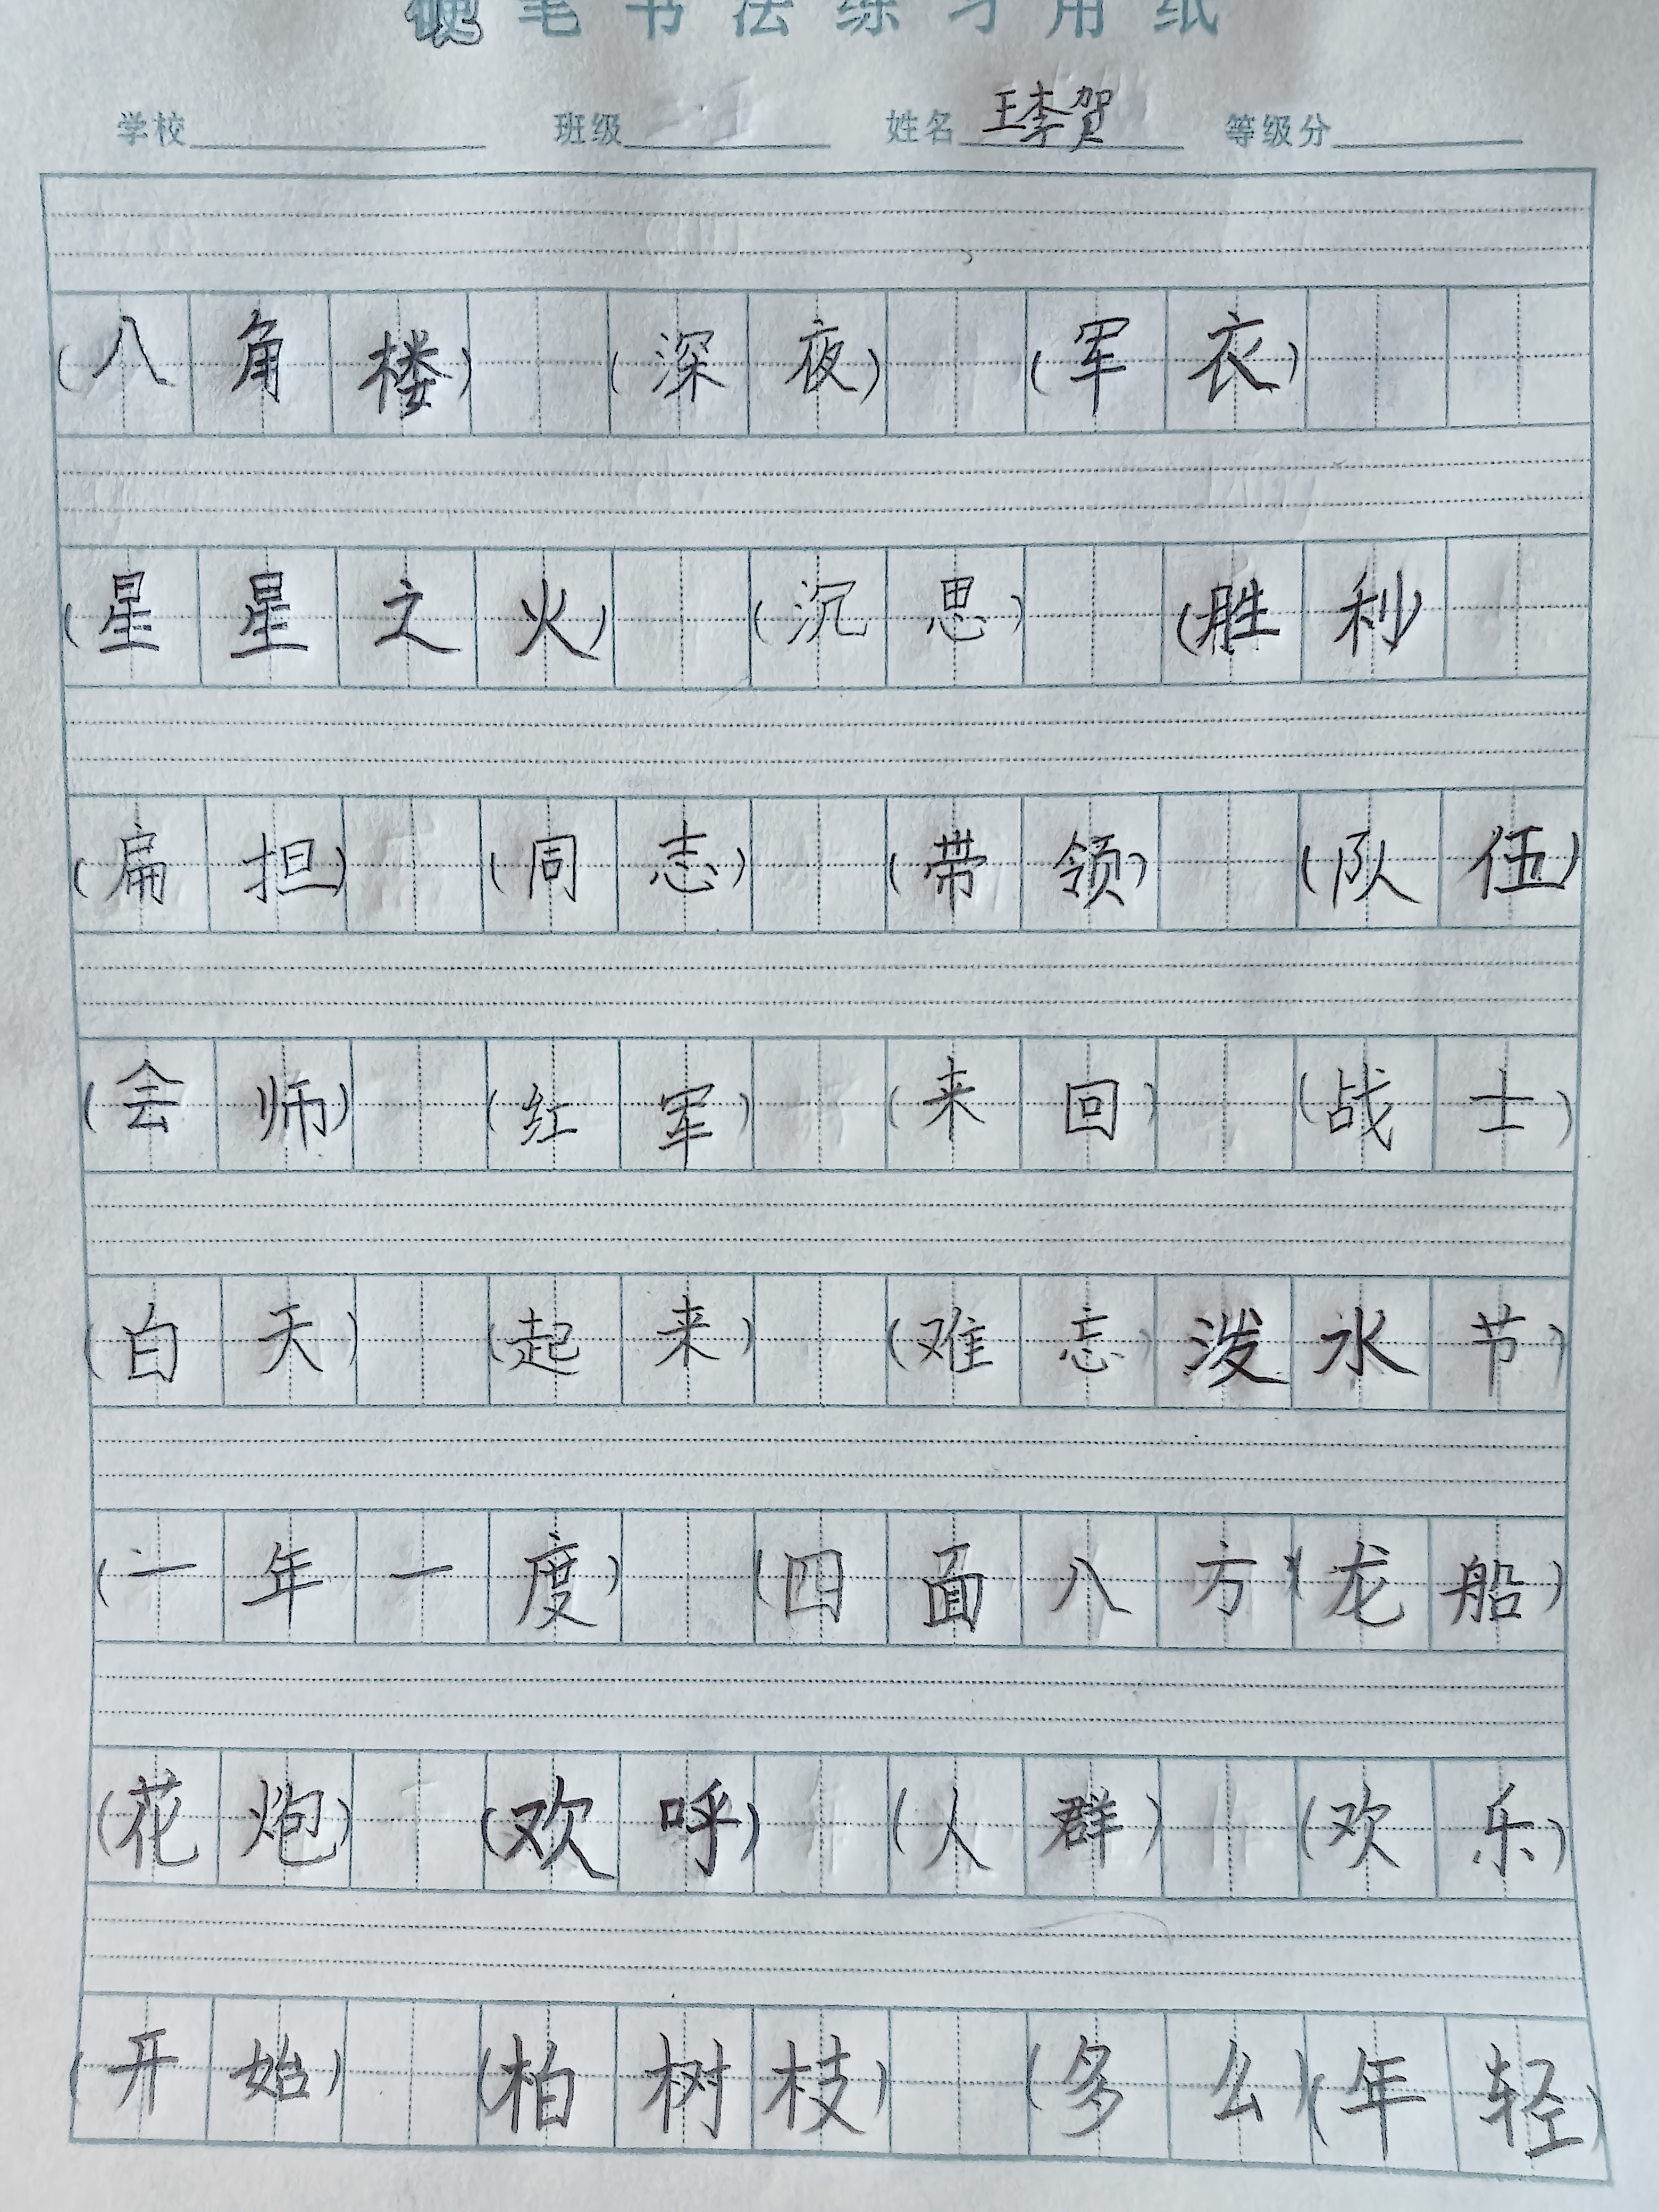 硬笔书法练习用纸
学校 班级 姓名 王李贺 等级分
(八角楼) (深夜) (军衣)
(星星之火) (沉思) (胜利)
(扁担) (同志) (带领) (队伍)
(会师) (红军) (来回) (战士)
(白天) (起来) (难忘)泼水节)
(一年一度) (四面八方)(龙船)
(花炮) (欢呼) (人群) (欢乐)
(开始) (柏树枝) (多么)(年轻)